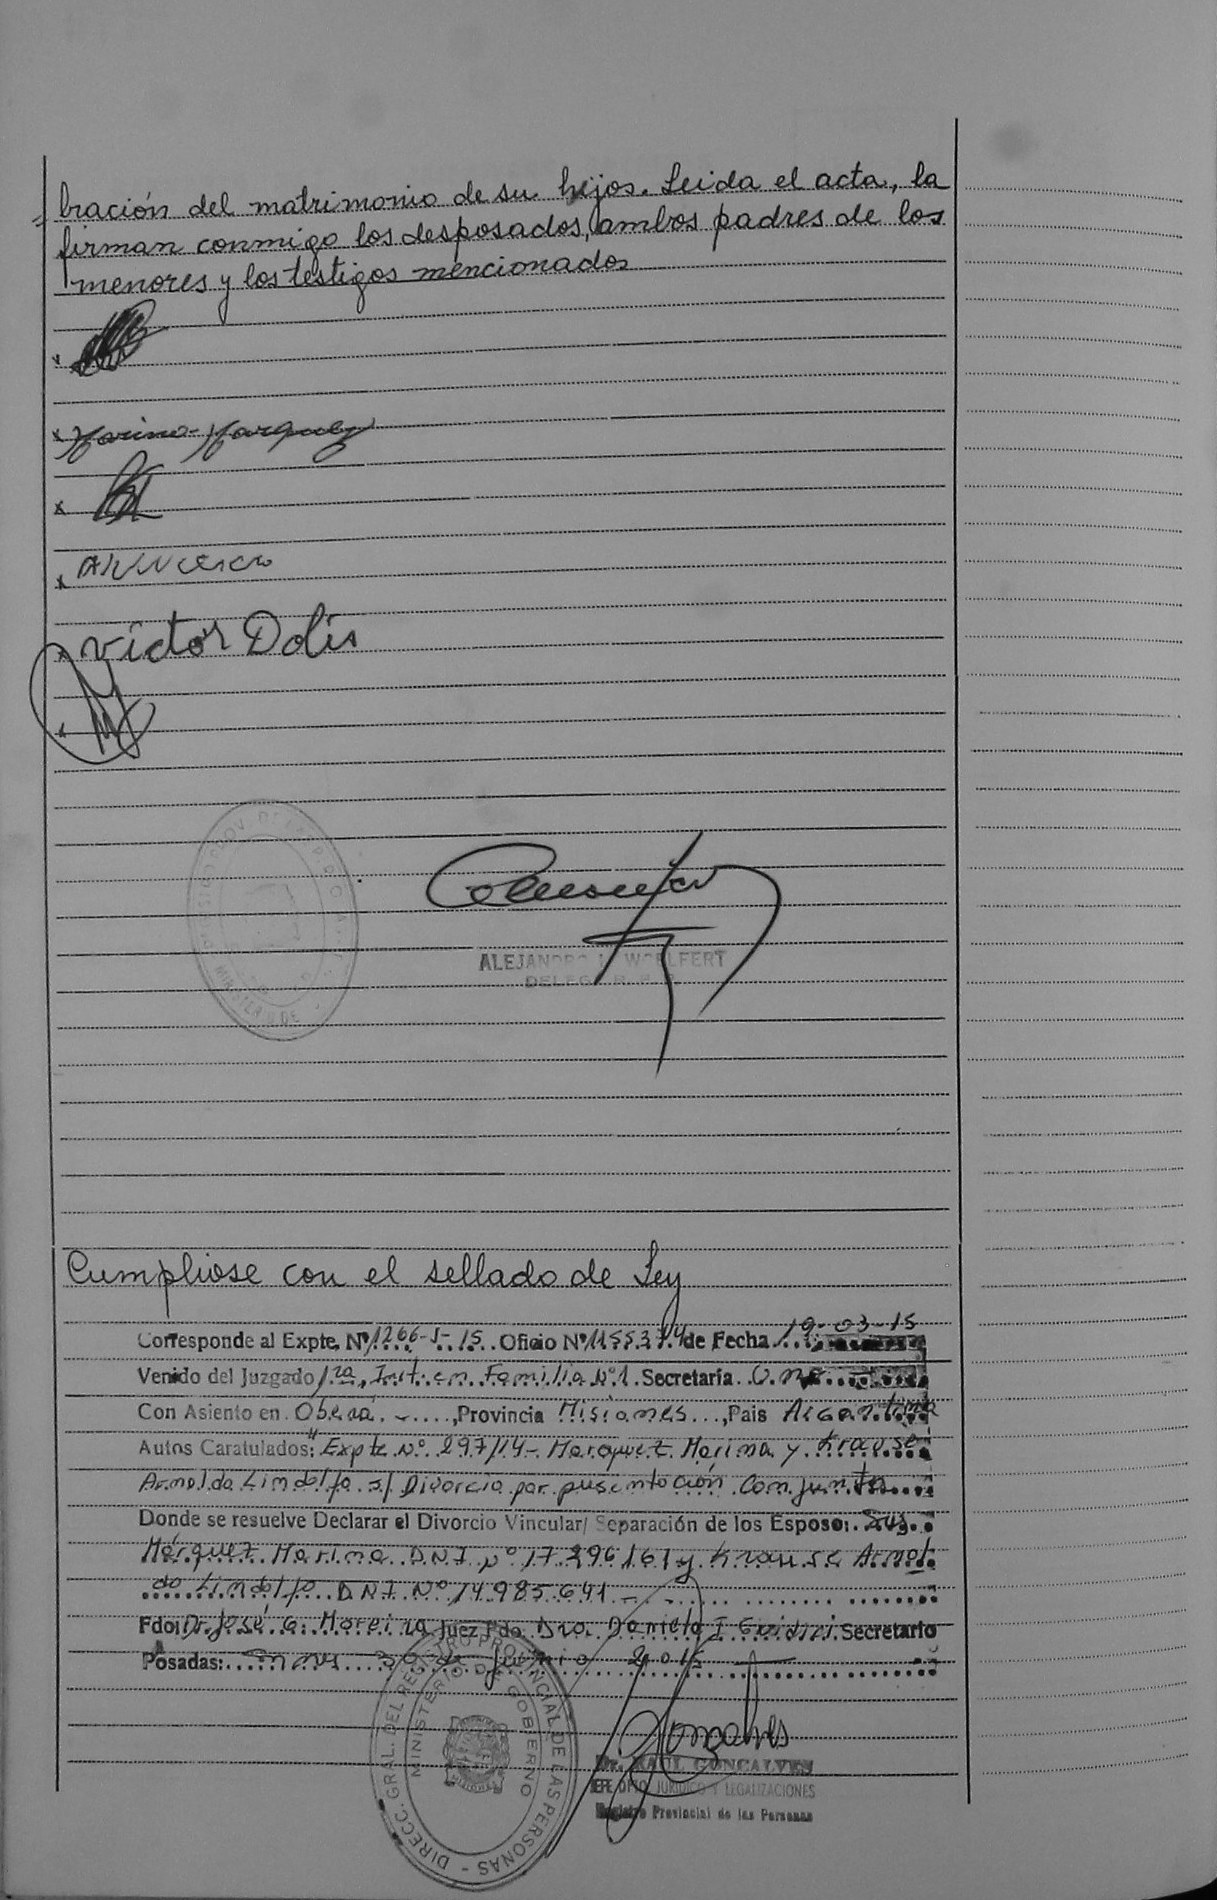 bración del matrimonio de su hijos. Leida el acta, la
firman conmigo los desposados, ambos padres de los
menores y los testigos mencionados
x
x Marina Marquez
x
x
x Victor Dolis
x
ALEJANDRO WOELFERT
MINISTERIO DE
Cumpliose con el sellado de Ley
Corresponde al Expte. Nº 1266-J-15. Oficio Nº 1155374 de Fecha 19-03-15
Venido del Juzgado 1ra. Inst. en Familia Nº1. Secretaria Una
Con Asiento en Oberá, Provincia Misiones, Pais Argentina
Autos Caratulados: "Expte Nº 297/14- Marquez Marina y Krause
Arnoldo Lindolfo s/ Divorcio por presentación Conjunta
Donde se resuelve Declarar el Divorcio Vincular/ Separación de los Esposo: Sres.
Márquez Marina DNI Nº 17.296.161 y Krause Arnol
do Lindolfo DNI Nº 14.985.641
Fdo: Dr. José G. Moreira Juez Fdo. Dra. Daniela I Guidici Secretario
Posadas: 30 de Junio 2015
DIRECC. GRAL. DEL REGISTRO PROVINCIAL DE LAS PERSONAS -
MINISTERIO DE GOBIERNO
MISIONES
Gonçalves
Dr. RAUL GONCALVES
JEFE DPTO JURIDICO Y LEGALIZACIONES
Registro Provincial de las Personas